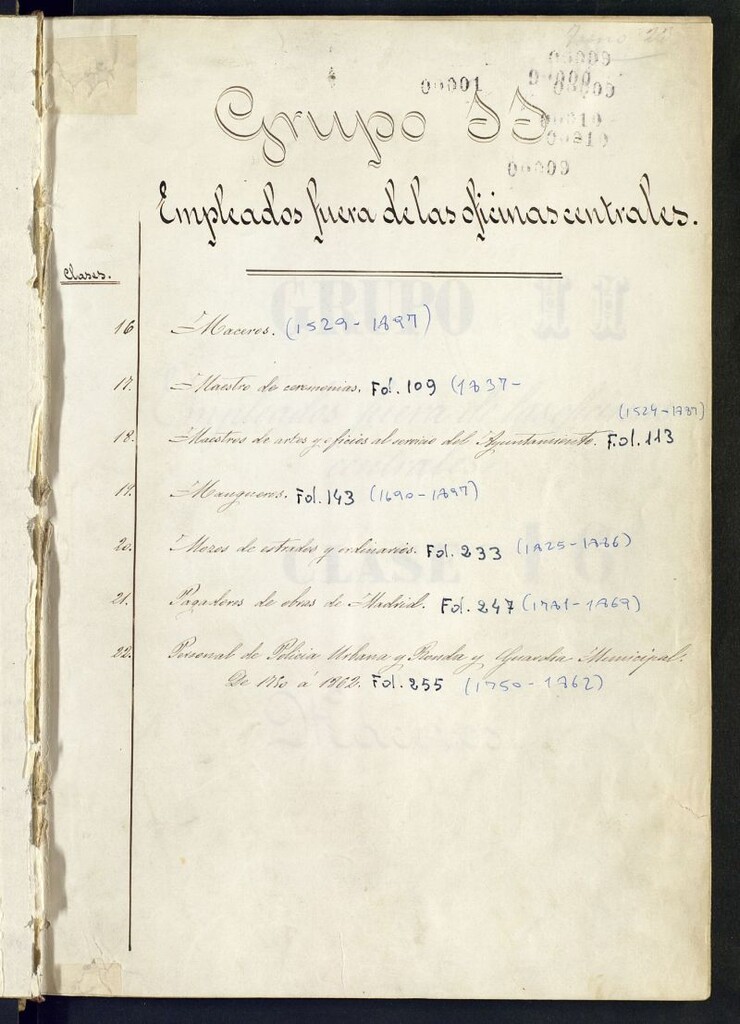 00009
00001 00000 00009
Grupo II
00010
00010
00009
Empleados fuera de las oficinas centrales.
Clases.
16 Maceros. (1529-1897)
17. Maestro de ceremonias. Fol. 109 (1837-
(1529-1787)
18. Maestros de artes y oficios al servicio del Ayuntamiento. Fol. 113
19. Mangueros. Fol. 143 (1690-1897)
20. Mozos de estrados y ordinarios. Fol. 233 (1825-1866)
21. Pagadores de obras de Madrid. Fol. 247 (1781-1869)
22. Personal de Policia Urbana y Ronda y Guardia Municipal.
De 1750 á 1862. Fol. 255 (1750-1862)